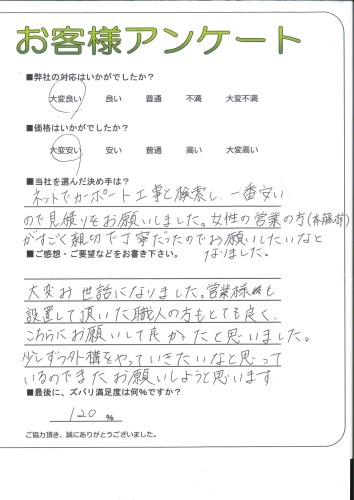 お客様アンケート
■弊社の対応はいかがでしたか？
大変良い 良い 普通 不満 大変不満
■価格はいかがでしたか？
大変安い 安い 普通 高い 大変高い
■当社を選んだ決め手は？
ネットでカーポート工事と検索し、一番安い
ので見積りをお願いしました。女性の営業の方(斉藤様)
がすごく親切で丁寧だったのでお願いしたいなと
なりました。
■ご感想・ご要望などをお書き下さい。
大変お世話になりました。営業様も
設置して頂いた職人の方もとても良く、
こちらにお願いして良かったと思いました。
少しずつ外構をやっていきたいなと思って
いるのでまたお願いしようと思います
■最後に、ズバリ満足度は何%ですか？
120 %
ご協力頂き、誠にありがとうございました。